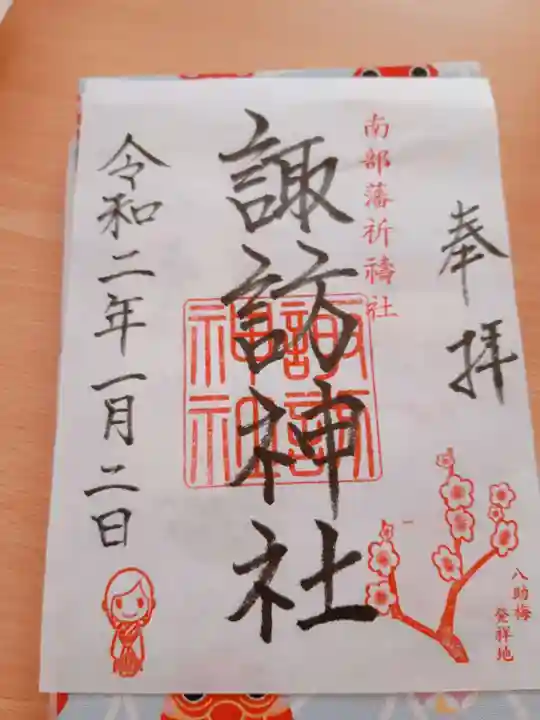 奉拝
南部藩祈禱社
諏訪神社
諏訪神社
令和二年一月二日
八助梅
発祥地